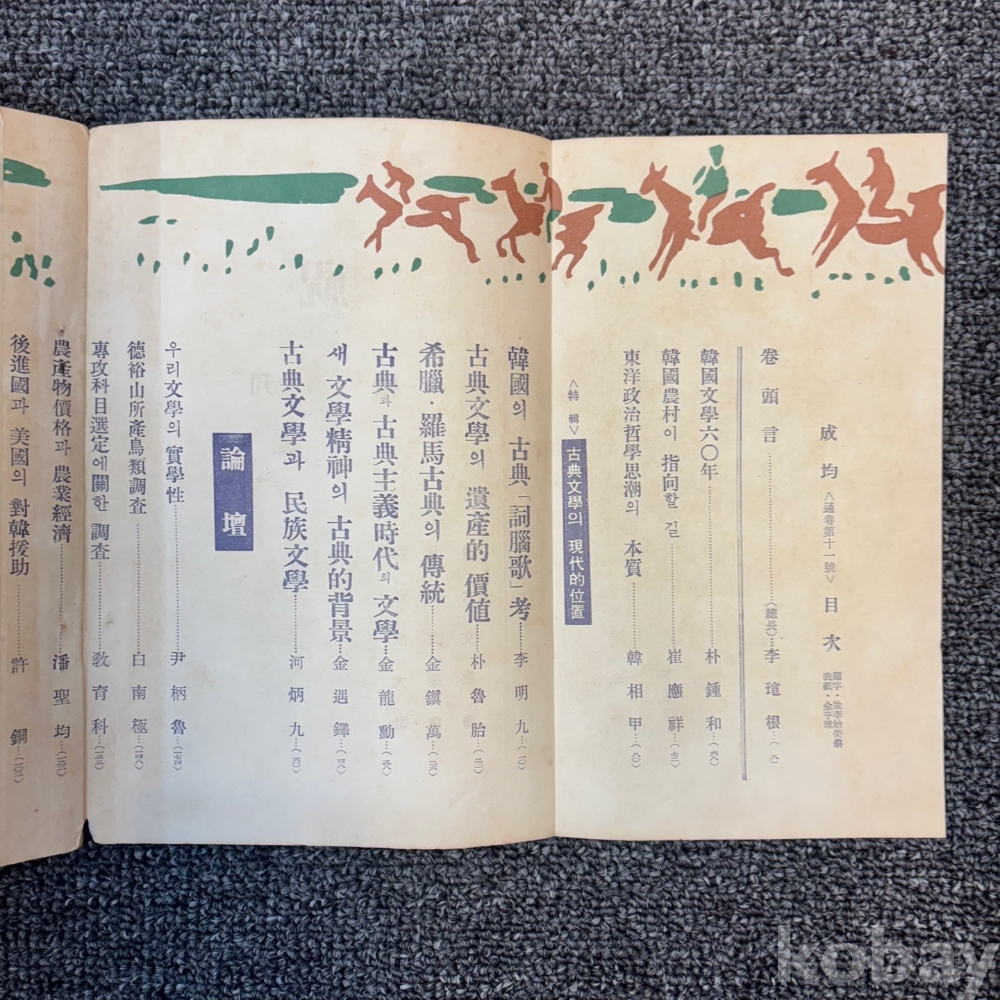 成均 <通卷第十一號> 目次
卷頭言 (總長) 李瑄根
韓國文學六〇年 朴鍾和
韓國農村이 指向할 길 崔應祥
東洋政治哲學思潮의 本質 韓相甲
<特輯> 古典文學의 現代的位置
韓國의 古典「詞腦歌」考 李明九
古典文學의 遺產的 價値 朴魯胎
希臘·羅馬古典의 傳統 金鎭萬
古典과 古典主義時代의 文學 金龍勳
새 文學精神의 古典的背景 金遇鐸
古典文學과 民族文學 河炳九
論壇
우리文學의 實學性 尹柄魯
德裕山所產鳥類調査 白南極
專攻科目選定에關한 調査 敎育科
農產物價格과 農業經濟 潘聖均
後進國과 美國의 對韓援助 許銅
kobay